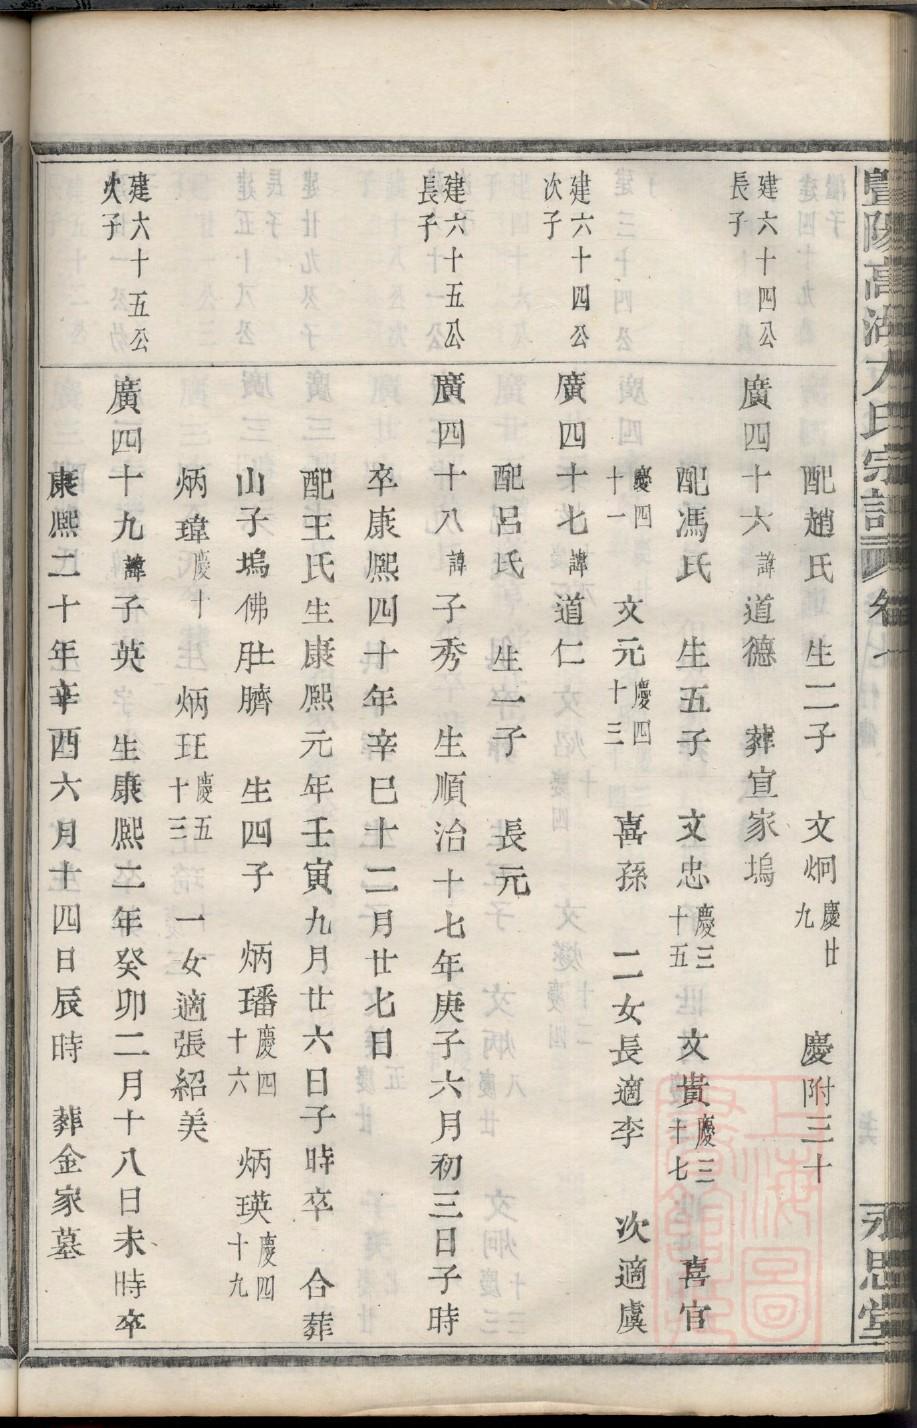 暨陽高湖方氏宗譜 卷
永思堂
配趙氏 生二子 文炯慶廿九 慶附三十
建六十四公長子
廣四十六諱道德 葬宣家塢
配馮氏 生五子 文忠慶三十五 文貴慶三十七 喜官
慶四十一 文元慶四十三 喜孫 二女長適李 次適虞
建六十四公次子
廣四十七諱道仁
配呂氏 生一子 長元
建六十五公長子
廣四十八諱子秀 生順治十七年庚子六月初三日子時
卒康熙四十年辛巳十二月廿七日
配王氏生康熙元年壬寅九月廿六日子時卒 合葬
山子塢佛肚臍 生四子 炳璠慶四十六 炳瑛慶四十九
炳瑋慶十 炳玨慶五十三 一女適張紹美
建六十五公次子
廣四十九諱子英 生康熙二年癸卯二月十八日未時卒
康熙二十年辛酉六月十四日辰時 葬金家墓